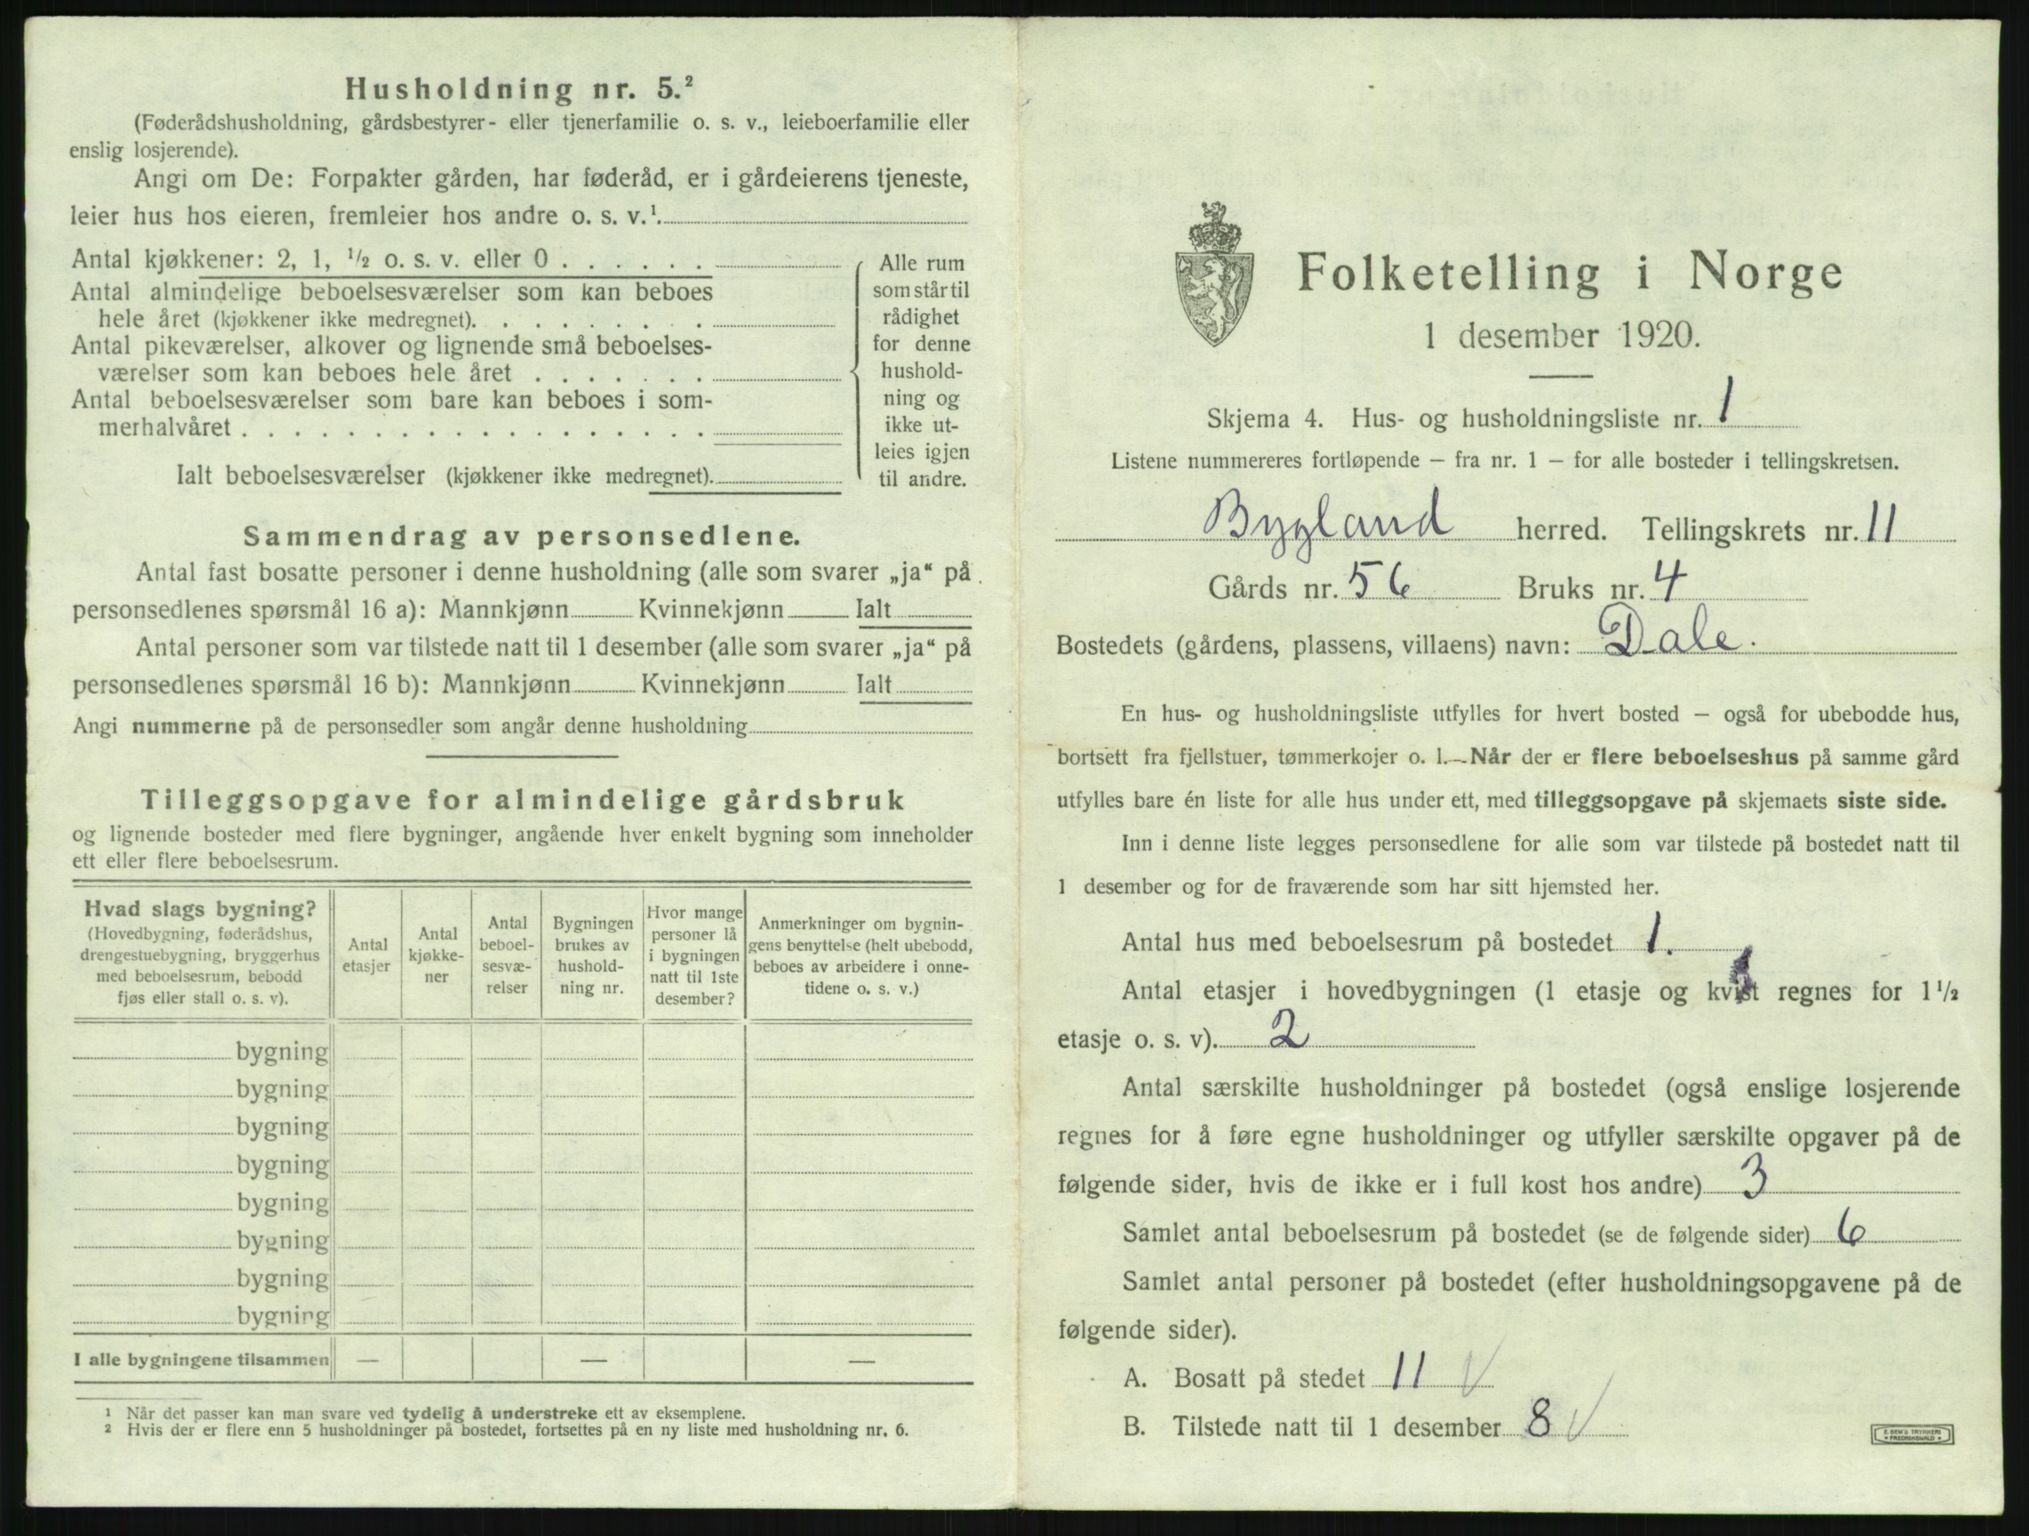 Husholdning nr. 5.²
(Føderådshusholdning, gårdsbestyrer- eller tjenerfamilie o. s. v., leieboerfamilie eller
enslig losjerende).
Angi om De: Forpakter gården, har føderåd, er i gårdeierens tjeneste,
leier hus hos eieren, fremleier hos andre o. s. v.¹.
Antal kjøkkener: 2, 1, ½ o. s. v. eller 0 . . . . . .
Antal almindelige beboelsesværelser som kan beboes
hele året (kjøkkener ikke medregnet). . . . . . . . .
Antal pikeværelser, alkover og lignende små beboelses-
værelser som kan beboes hele året . . . . . . .
Antal beboelsesværelser som bare kan beboes i som-
merhalvåret . . . . . . . . . . . . . . . . . .
Ialt beboelsesværelser (kjøkkener ikke medregnet).
Alle rum
som står til
rådighet
for denne
hushold-
ning og
ikke ut-
leies igjen
til andre.
Sammendrag av personsedlene.
Antal fast bosatte personer i denne husholdning (alle som svarer „ja“ på
personsedlenes spørsmål 16 a): Mannkjønn Kvinnekjønn Ialt
Antal personer som var tilstede natt til 1 desember (alle som svarer „ja“ på
personsedlenes spørsmål 16 b): Mannkjønn Kvinnekjønn Ialt
Angi nummerne på de personsedler som angår denne husholdning
Tilleggsopgave for almindelige gårdsbruk
og lignende bosteder med flere bygninger, angående hver enkelt bygning som inneholder
ett eller flere beboelsesrum.
Hvad slags bygning?
(Hovedbygning, føderådshus,
drengestuebygning, bryggerhus
med beboelsesrum, bebodd
fjøs eller stall o. s. v).
Antal
etasjer
Antal
kjøkke-
ner
Antal
beboel-
sesvæ-
relser
Bygningen
brukes av
hushold-
ning nr.
Hvor mange
personer lå
i bygningen
natt til 1ste
desember?
Anmerkninger om bygnin-
gens benyttelse (helt ubebodd,
beboes av arbeidere i onne-
tidene o. s. v.)
bygning
bygning
bygning
bygning
bygning
bygning
bygning
bygning
I alle bygningene tilsammen — — —
¹ Når det passer kan man svare ved tydelig å understreke ett av eksemplene.
² Hvis der er flere enn 5 husholdninger på bostedet, fortsettes på en ny liste med husholdning nr. 6.
Folketelling i Norge
1 desember 1920.
Skjema 4. Hus- og husholdningsliste nr. 1
Listene nummereres fortløpende — fra nr. 1 — for alle bosteder i tellingskretsen.
Bygland herred. Tellingskrets nr. 11
Gårds nr. 56 Bruks nr. 4
Bostedets (gårdens, plassens, villaens) navn: Dale.
En hus- og husholdningsliste utfylles for hvert bosted — også for ubebodde hus,
bortsett fra fjellstuer, tømmerkojer o. l.—Når der er flere beboelseshus på samme gård
utfylles bare én liste for alle hus under ett, med tilleggsopgave på skjemaets siste side.
Inn i denne liste legges personsedlene for alle som var tilstede på bostedet natt til
1 desember og for de fraværende som har sitt hjemsted her.
Antal hus med beboelsesrum på bostedet 1.
Antal etasjer i hovedbygningen (1 etasje og kvist regnes for 1½
etasje o. s. v). 2
Antal særskilte husholdninger på bostedet (også enslige losjerende
regnes for å føre egne husholdninger og utfyller særskilte opgaver på de
følgende sider, hvis de ikke er i full kost hos andre) 3
Samlet antal beboelsesrum på bostedet (se de følgende sider) 6
Samlet antal personer på bostedet (efter husholdningsopgavene på de
følgende sider).
A. Bosatt på stedet 11 √
B. Tilstede natt til 1 desember 8 √
E. SEM'S TRYKKERI
FREDRIKSHALD